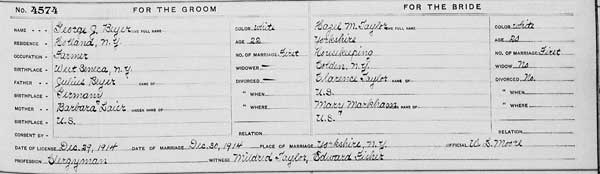 No. 4574 FOR THE GROOM FOR THE BRIDE
NAME George J. Beyer GIVE FULL NAME COLOR White Hazel M. Taylor GIVE FULL NAME COLOR White
RESIDENCE Holland, N.Y. AGE 22 Yorkshire AGE 20
OCCUPATION Farmer NO. OF MARRIAGE First Housekeeping NO. OF MARRIAGE First
BIRTHPLACE West Seneca, N.Y. WIDOWER — Colden, N.Y. WIDOW No
FATHER Julius Beyer NAME OF DIVORCED — Clarence Taylor NAME OF DIVORCED No.
BIRTHPLACE Germany " WHEN U.S. " WHEN
MOTHER Barbara MAIDEN NAME OF " WHERE Mary Markham NAME OF " WHERE
BIRTHPLACE U.S. U.S.
CONSENT BY RELATION RELATION
DATE OF LICENSE Dec. 29, 1914 DATE OF MARRIAGE Dec. 30, 1914 PLACE OF MARRIAGE Yorkshire, N.Y. OFFICIAL W. S. Moore
PROFESSION Clergyman WITNESS Mildred Taylor, Edward Fisher